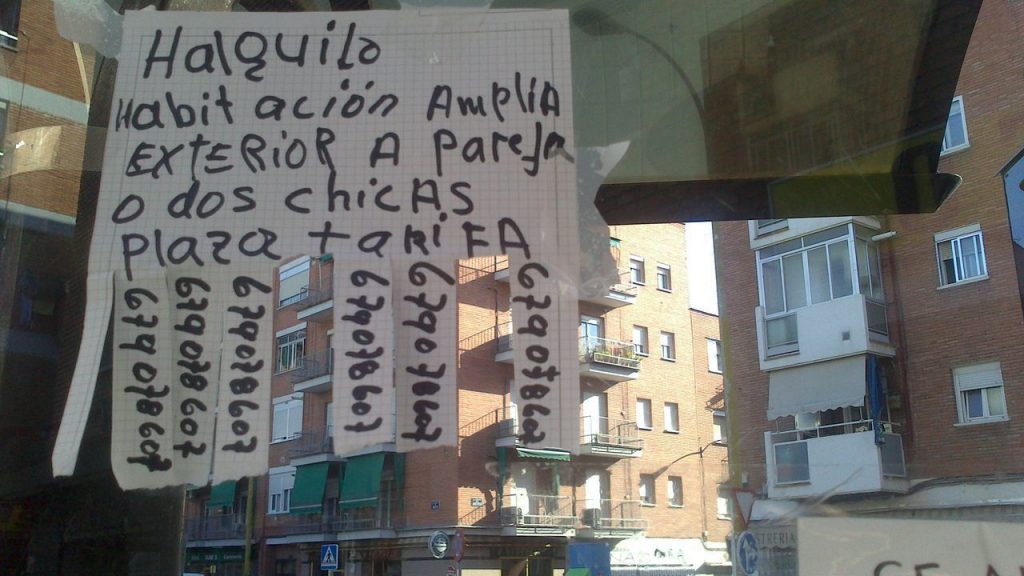 Halquilo
Habitación AmpliA
EXTERIOR A Pareja
o dos chicAS
plaza tariFA
679078607
679078607
679078607
679078607
679078607
679078607
STRERIA